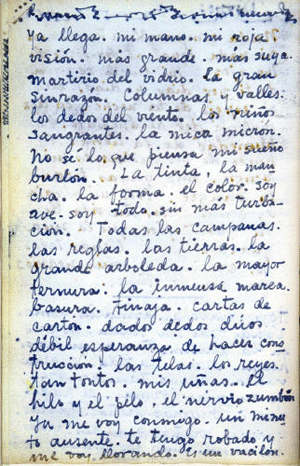 Ya llega. mi mano. mi roja
visión. más grande. más suya.
martirio del vidrio. la gran
sinrazón. Columnas y valles.
los dedos del viento. los niños
sangrantes. la mica micron.
No sé lo que piensa mi sueño
burlon. La tinta, la man-
cha. la forma. el color. soy
ave. soy todo. sin más turba-
ción. Todas las campanas.
las reglas. las tierras. la
grande arboleda. la mayor
ternura. la inmensa marea.
basura. tinaja. cartas de
carton. dados dedos dúos
débil esperanza de hacer cons-
trucción. las telas. los reyes.
tan tontos. mis uñas. el
hilo y el pelo. el nervio zumbón
ya me voy conmigo. un minu-
to ausente. te tengo robado y
me voy llorando. Es un vacilon.